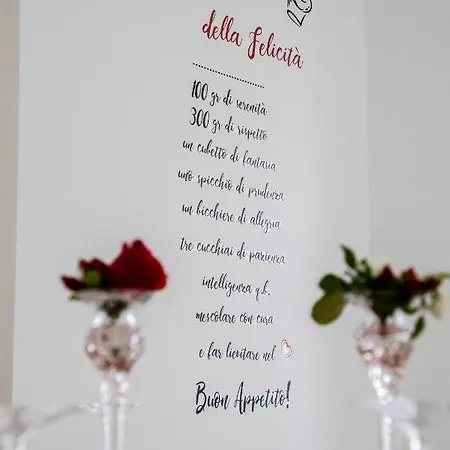 della Felicità
100 gr di serenità
300 gr di rispetto
un cubetto di fantasia
uno spicchio di prudenza
un bicchiere di allegria
tre cucchiai di pazienza
intelligenza q.b.
mescolare con cura
e far lievitare nel
Buon Appetito!